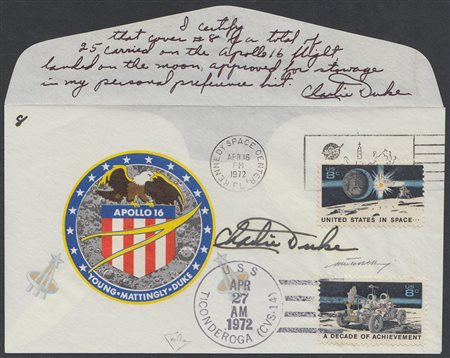 I certify
that cover #8 of a total of
25 carried on the Apollo 16 flight
landed on the moon, approved for stowage
in my personal preference kit.
Charlie Duke
8
KENNEDY SPACE CENTER, FL.
APR 16
PM
1972
APOLLO 16
YOUNG · MATTINGLY · DUKE
Charlie Duke
8c
UNITED STATES IN SPACE...
U.S.S. TICONDEROGA (CVS-14)
APR
27
AM
1972
8c
A DECADE OF ACHIEVEMENT